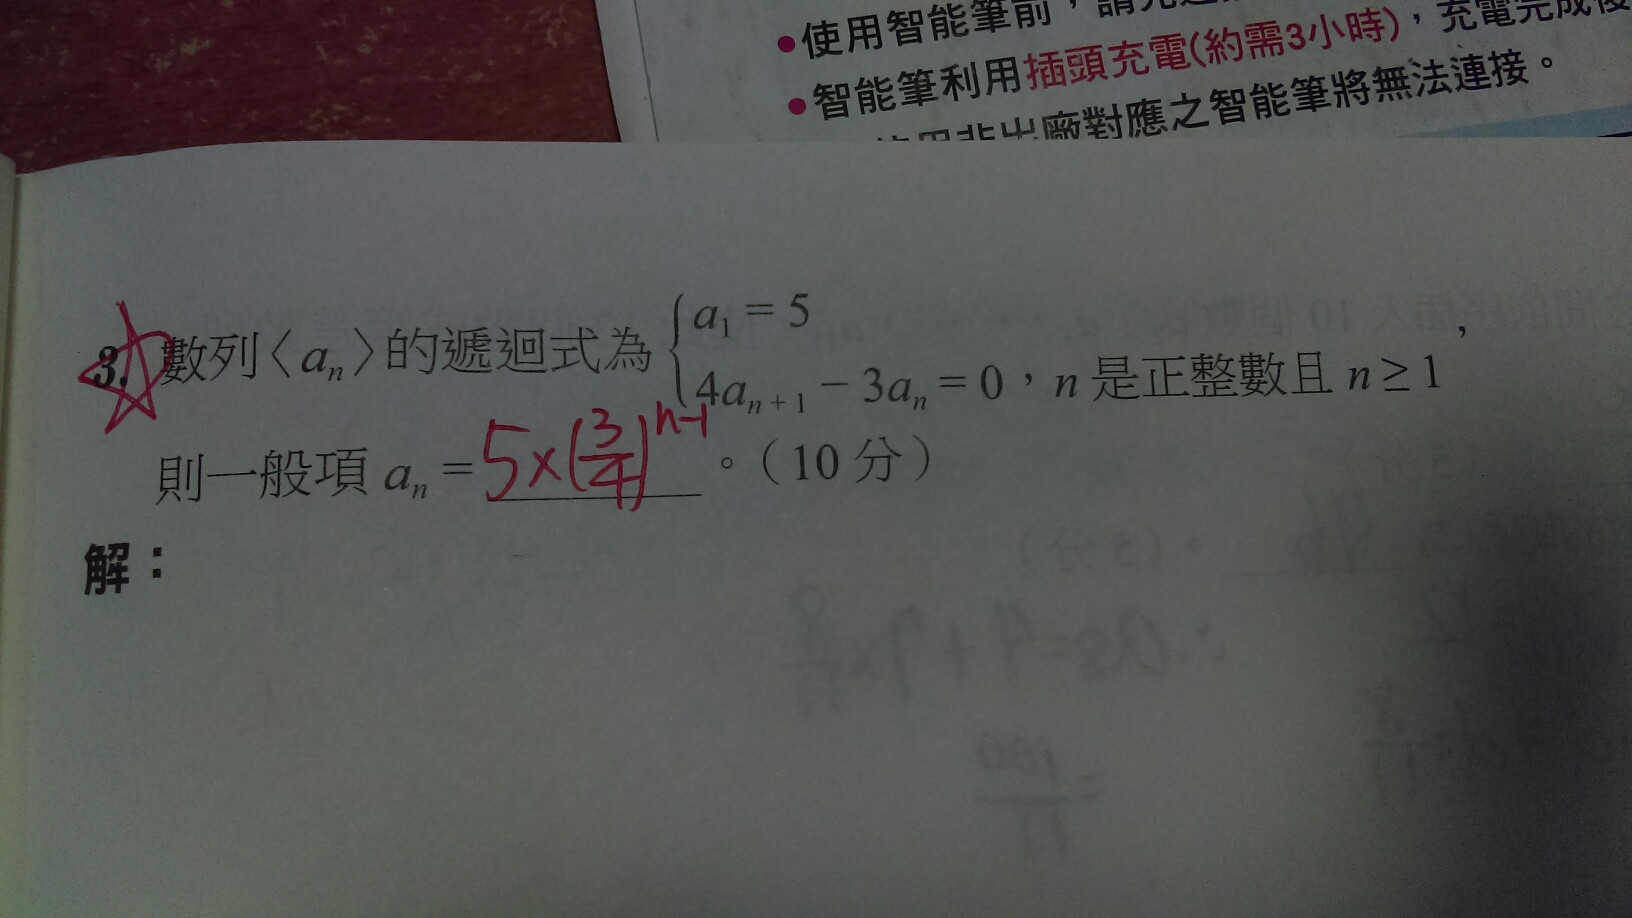 ●使用智能筆前，請先
●智能筆利用插頭充電(約需3小時)，充電完成後
使用非出廠對應之智能筆將無法連接。
3. 數列〈aₙ〉的遞迴式為 { a₁ = 5
4aₙ₊₁ − 3aₙ = 0，n 是正整數且 n ≥ 1 ，
則一般項 aₙ = 5×(3/4)ⁿ⁻¹ 。（10 分）
解：